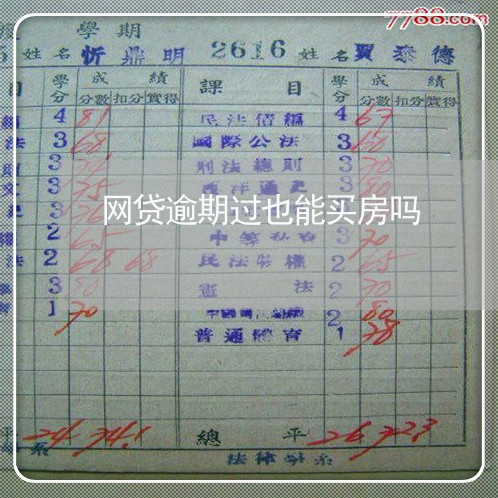 7788.com
學期
姓名 忻鼎明 2616 姓名 賈泰德
目 學分 成績 課目 學分 成績
分數 扣分 實得 分數 扣分 實得
4 81 民法債編 4 67
法 3 68 國際公法 3 60
3 刑法總則 3 70
3 75 西洋通史 3 80
3
網贷逾期过也能买房吗
2 65 3 70
法 2 68 68 民法物權 2 65
3 80 憲法 2 70
1 70 2 80
普通體育 1 78
平 24 74.1 總平 26 72.3
系 法律學系